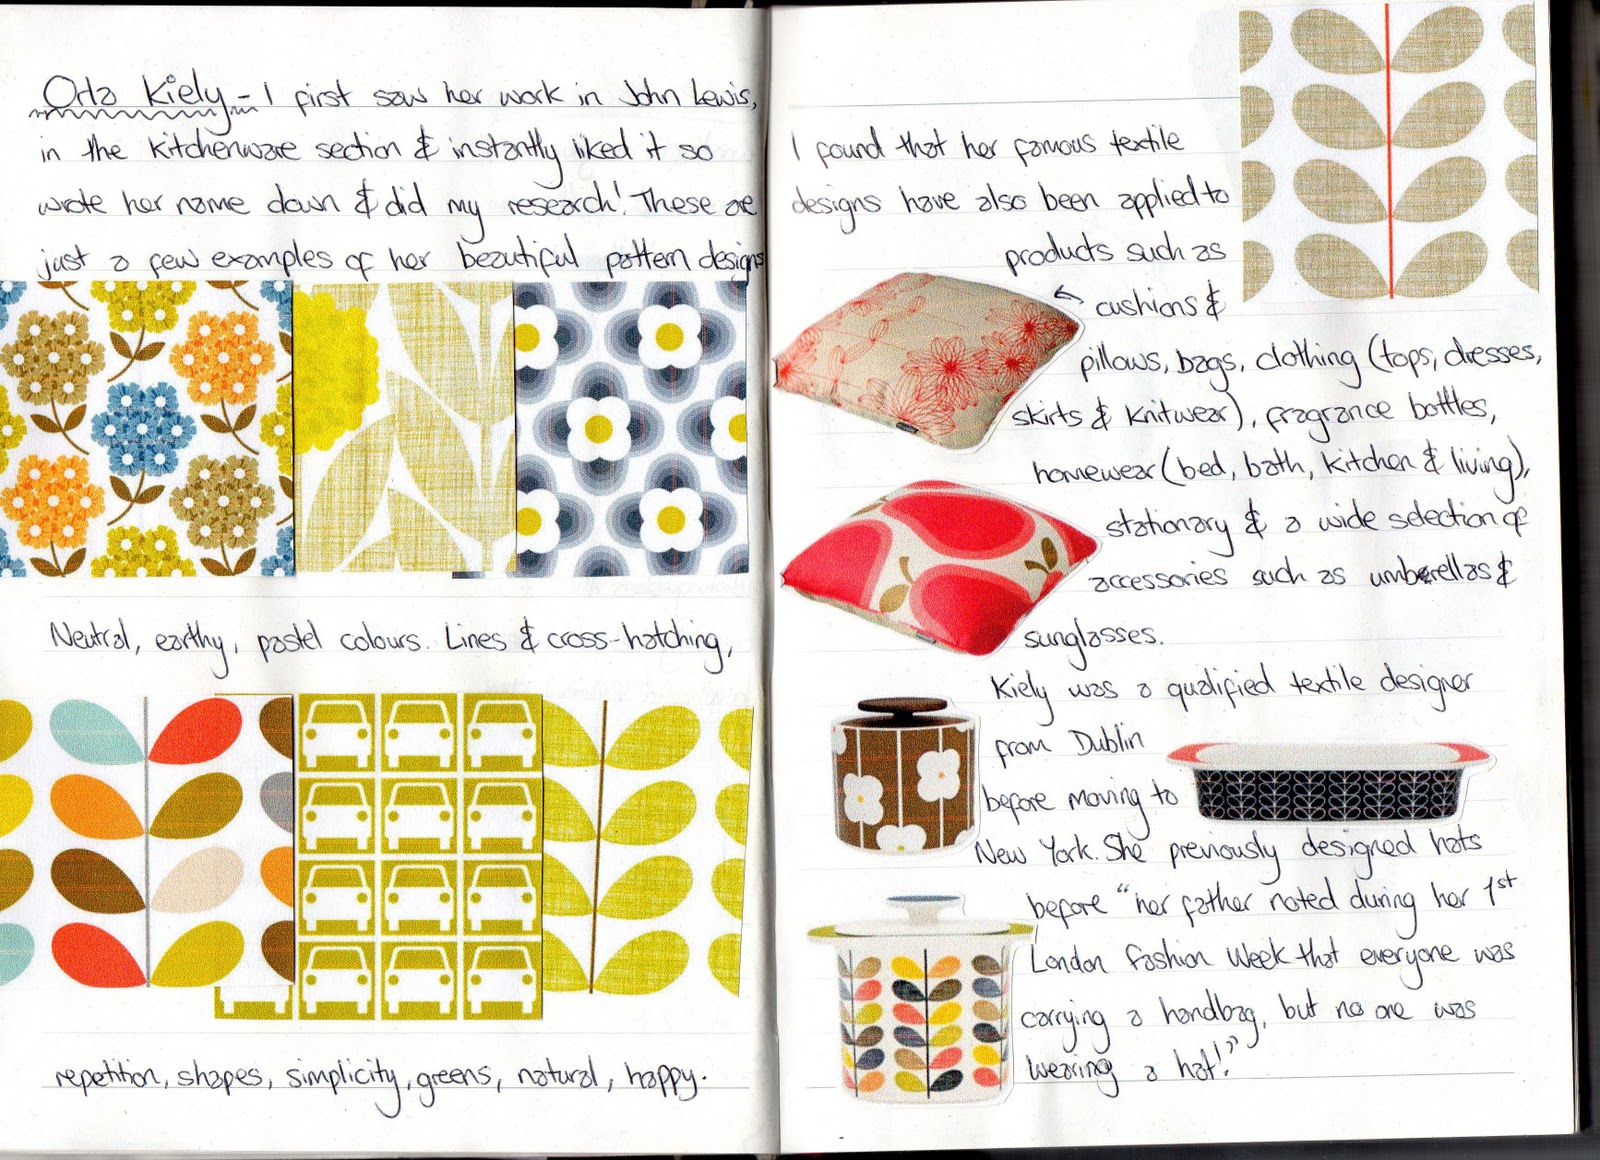 Orla Kiely - I first saw her work in John Lewis,
in the kitchenware section & instantly liked it so
wrote her name down & did my research! These are
just a few examples of her beautiful pattern designs
Neutral, earthy, pastel colours. Lines & cross-hatching,
repetition, shapes, simplicity, greens, natural, happy.
I found that her famous textile
designs have also been applied to
products such as
cushions &
pillows, bags, clothing (tops, dresses,
skirts & knitwear), fragrance bottles,
homewear (bed, bath, kitchen & living),
stationary & a wide selection of
accessories such as umbrellas &
sunglasses.
Kiely was a qualified textile designer
from Dublin
before moving to
New York. She previously designed hats
before "her father noted during her 1st
London Fashion Week that everyone was
carrying a handbag, but no one was
wearing a hat!"